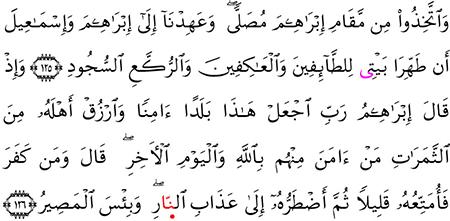 وَٱتَّخِذُوا۟ مِن مَّقَامِ إِبْرَٰهِـۧمَ مُصَلًّى ۖ وَعَهِدْنَآ إِلَىٰٓ إِبْرَٰهِـۧمَ وَإِسْمَـٰعِيلَ
أَن طَهِّرَا بَيْتِى لِلطَّآئِفِينَ وَٱلْعَـٰكِفِينَ وَٱلرُّكَّعِ ٱلسُّجُودِ ﴿١٢٥﴾ وَإِذْ
قَالَ إِبْرَٰهِـۧمُ رَبِّ ٱجْعَلْ هَـٰذَا بَلَدًا ءَامِنًا وَٱرْزُقْ أَهْلَهُۥ مِنَ
ٱلثَّمَرَٰتِ مَنْ ءَامَنَ مِنْهُم بِٱللَّهِ وَٱلْيَوْمِ ٱلْـَٔاخِرِ ۖ قَالَ وَمَن كَفَرَ
فَأُمَتِّعُهُۥ قَلِيلًا ثُمَّ أَضْطَرُّهُۥٓ إِلَىٰ عَذَابِ ٱلنَّارِ ۖ وَبِئْسَ ٱلْمَصِيرُ ﴿١٢٦﴾